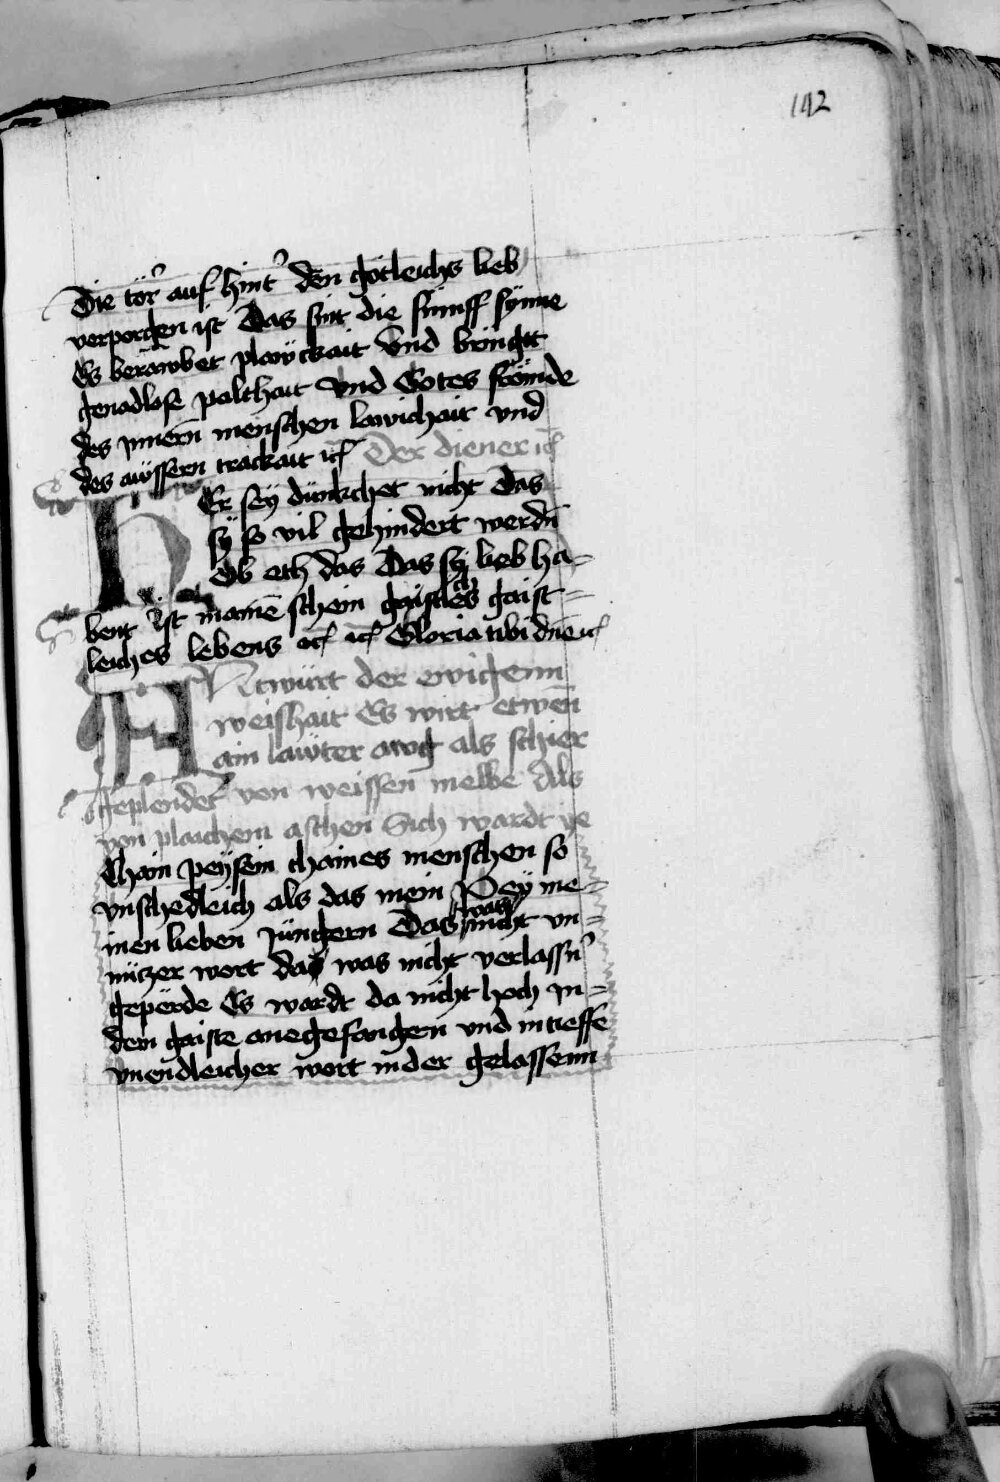 142
Die tör auf hint den götleichs lieb
verporgen ist Das sint die fümff synne
Es berawbet plawckait Vnd bringtt
genadlose palthait Vnd Gotes fröimde
des innern menschen lawichait vnd
des awssern trackait ꝛc Der diener ꝛc
HEr sey dünkchet nicht Das
sy so vil gehindert werdn
Ob eth das Das sy lieb ha-
bent ist mainē schein gaistlichs gaist-
leiches lebens ꝛc ꝛc Gloria tibi dnē ꝛc
ANtwürt der ewigenn
weishait Es wirt etwen
ain lawter awg als schier
geplendet von weissen melbe Als
von plaichem aschen Sich wardt ye
Chain peysein chaines menschen so
vnschedleich als das mein Pey me-
inen lieben Jüngern Das was nicht vn-
nüczer wort das was nicht verlassn
geperde Es wardt da nicht hoch in-
dem gaiste anegefangen vnd in tieffe
vnendleicher wort nider gelassenn